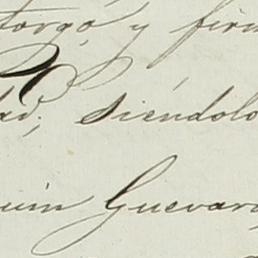 torgó y firm
dad; siéndolo
uin Guevara